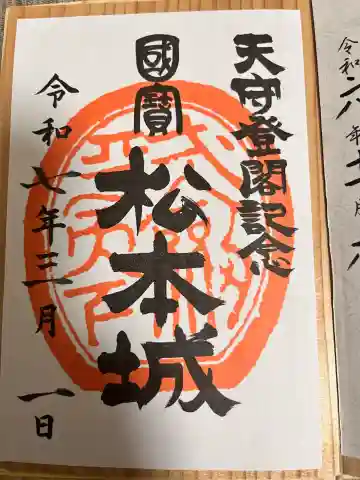 天守登閣記念
國寶
松本城
令和七年三月一日
令和六年十一月